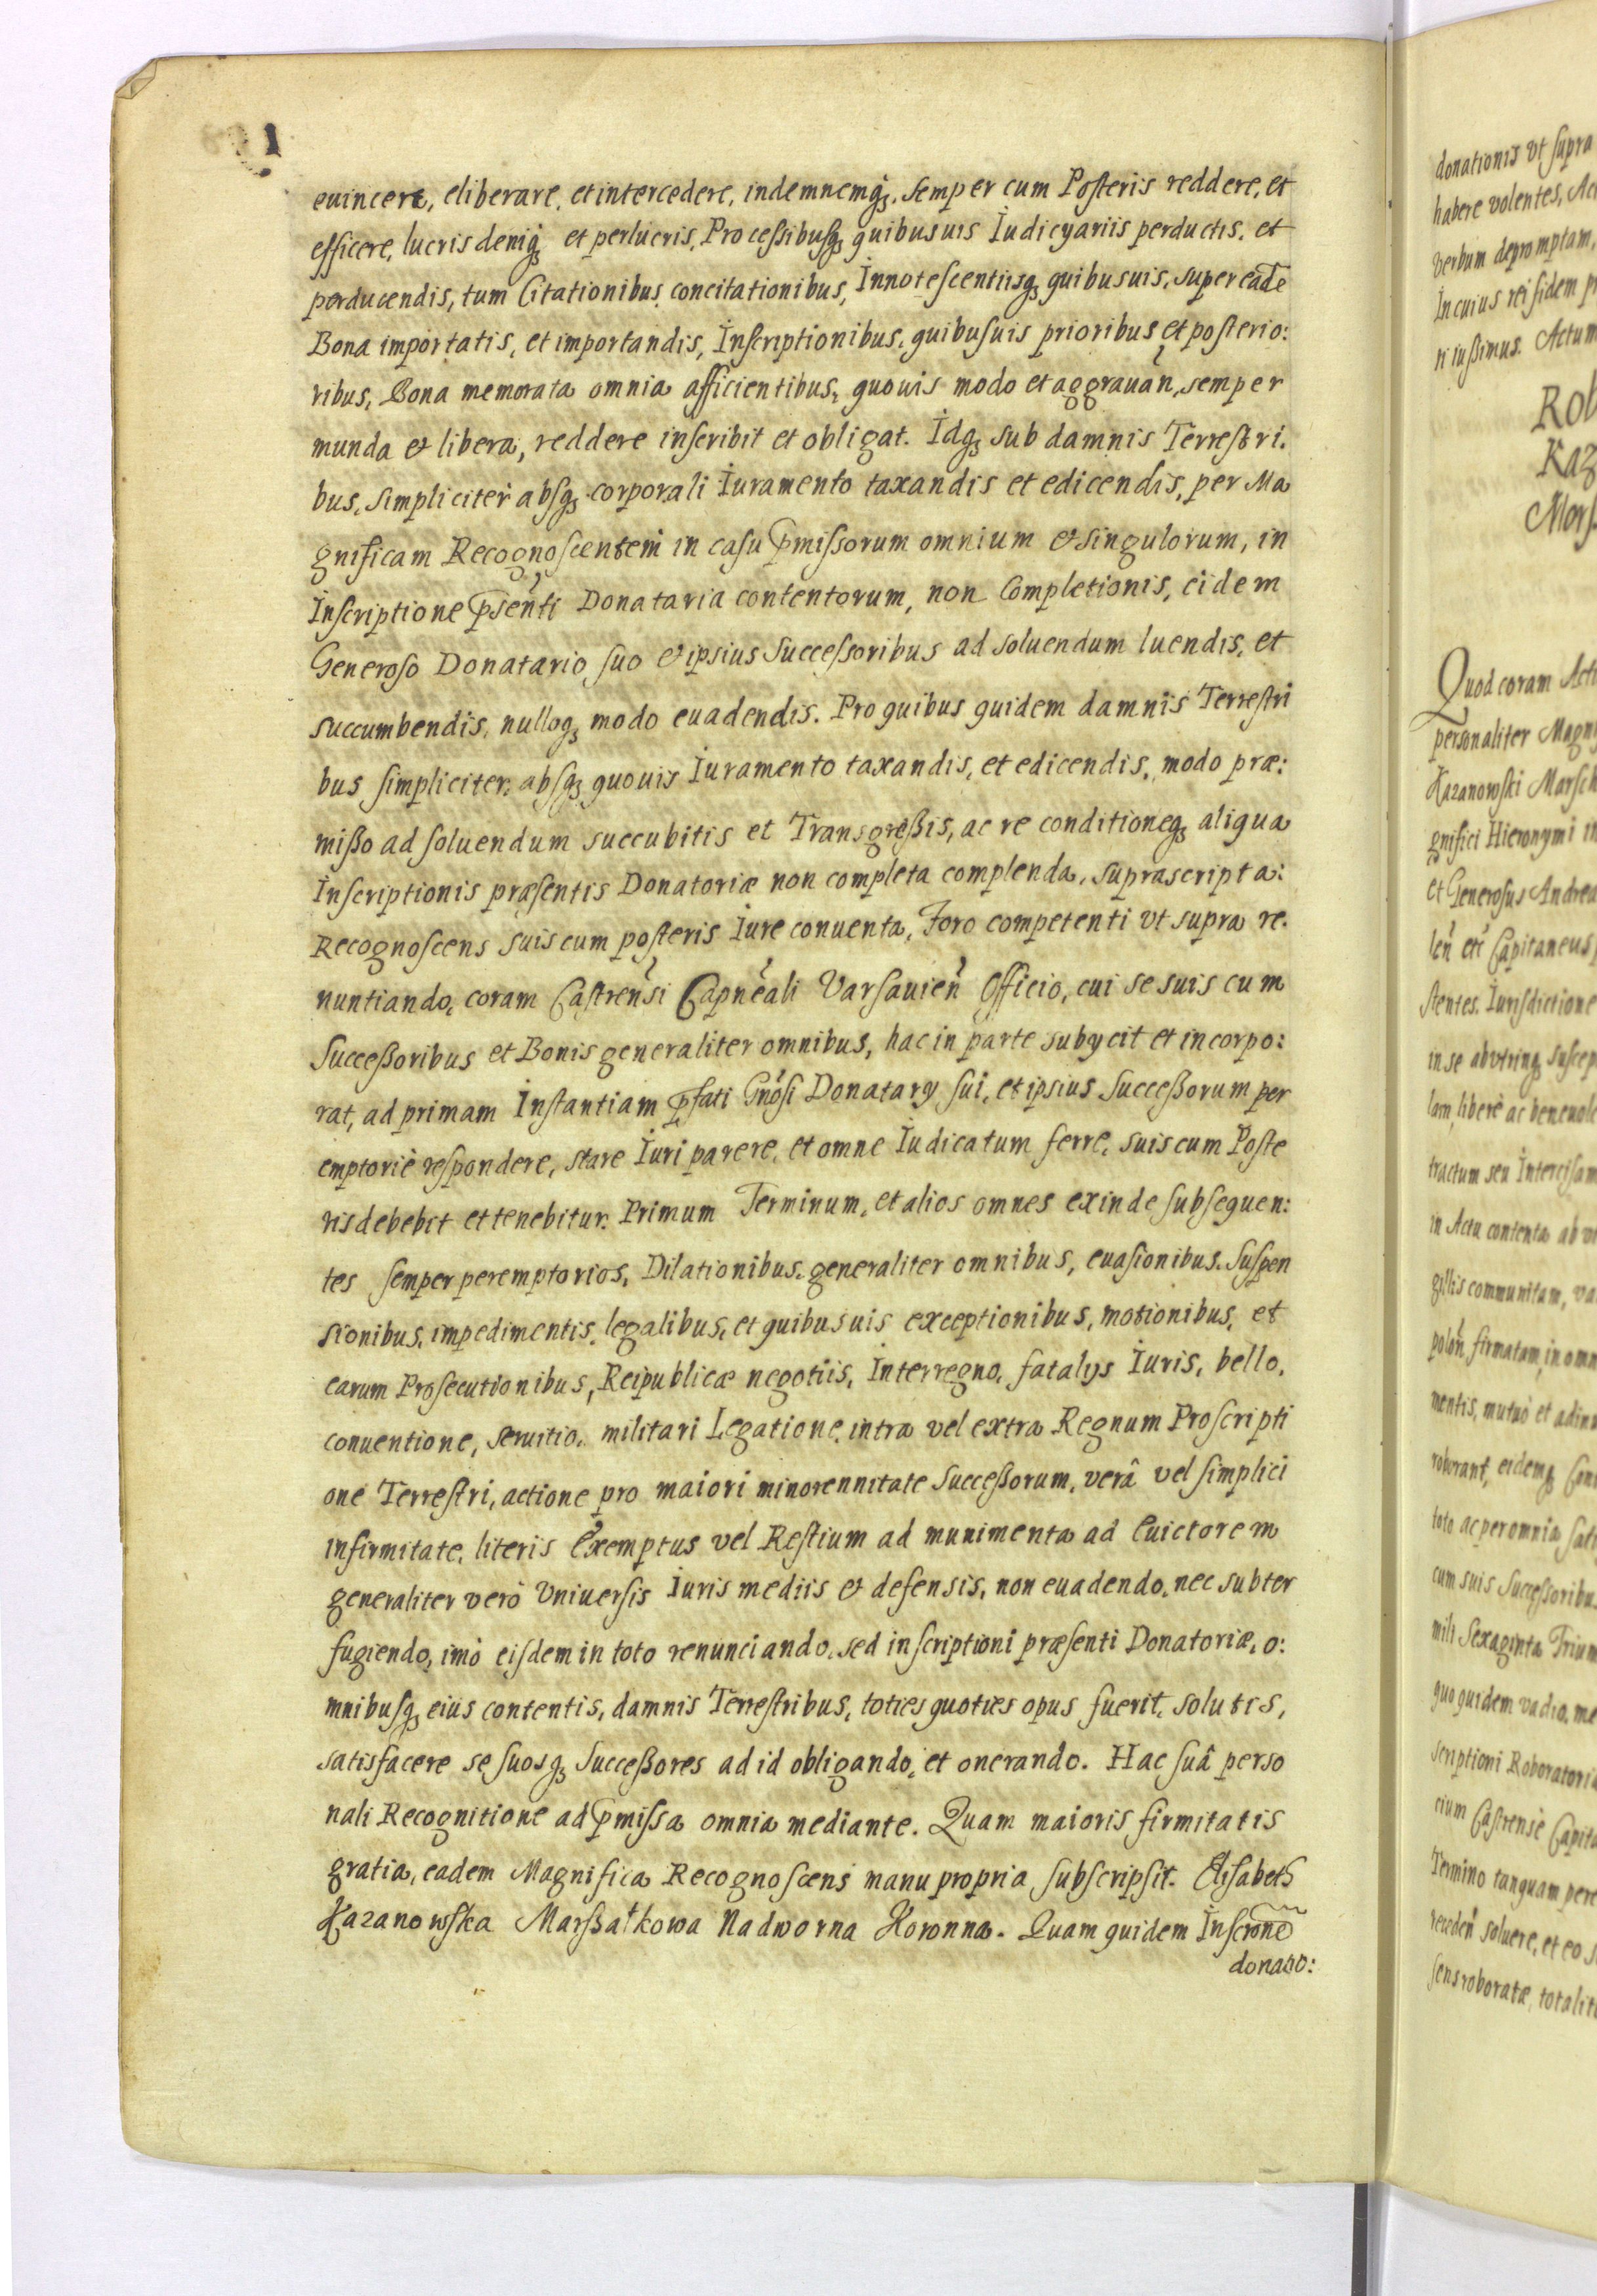 euincere, eliberare, et intercedere, indemnemq3, semper cum Posteris reddere, et
efficere, lucris deniq3 et perlucris, Processibusq3 quibusuis Iudicyariis perductis, et
perducendis, tum Citationibus, concitationibus, Innotescentiisq3 quibusuis, super eade
Bona importatis, et importandis, Inscriptionibus, quibusuis prioribus et posterio:
ribus, Bona memorata omnia afficientibus, quouis modo et aggrauan, semper
munda & libera, reddere inscribit et obligat. Idq3 sub damnis Terrestri.
bus, simpliciter absq3 corporali Iuramento taxandis et edicendis, per Ma
gnificam Recognoscentem in casu pmissorum omnium & singulorum, in
Inscriptione psenti Donataria contentorum, non Completionis, eidem
Generoso Donatario suo & ipsius Successoribus ad soluendum luendis, et
succumbendis, nulloq3 modo euadendis. Pro quibus quidem damnis Terrestri
bus simpliciter, absq3 quouis Iuramento taxandis, et edicendis, modo præ:
misso ad soluendum succubitis et Transgressis, ac re conditioneq3 aliqua
Inscriptionis præsentis Donatoriæ non completa complenda, suprascripta:
Recognoscens suis cum posteris Iure conuenta, Foro competenti vt supra re.
nuntiando, coram Castrensi Capneali Varsauien Officio, cui se suis cum
Successoribus et Bonis generaliter omnibus, hac in parte subycit et incorpo:
rat, ad primam Instantiam pfati Gnosi Donatary sui, et ipsius Successorum per
emptoriè respondere, stare Iuri parere, et omne Iudicatum ferre, suis cum Poste
ris debebit et tenebitur. Primum Terminum, et alios omnes exinde subsequen:
tes semper peremptorios, Dilationibus, generaliter omnibus, euasionibus. Suspen
sionibus, impedimentis, legalibus, et quibusuis exceptionibus, motionibus, et
earum Prosecutionibus, Reipublicæ negotiis, Interregno, fatalys Iuris, bello,
conuentione, seruitio, militari Legatione, intra vel extra Regnum Proscripti
one Terrestri, actione pro maiori minorennitate Successorum, verâ vel simplici
infirmitate, literis Exemptus vel Restium ad munimenta ad Euictorem
generaliter verò Vniuersis Iuris mediis & defensis, non euadendo, nec subter
fugiendo, imò eisdem in toto renunciando, sed inscriptioni præsenti Donatoriæ, o:
mnibusq3 eius contentis, damnis Terrestribus, toties quoties opus fuerit, solutis,
satisfacere se suosq3 Successores ad id obligando, et onerando. Hac suâ perso
nali Recognitione ad pmissa omnia mediante. Quam maioris firmitatis
gratia, eadem Magnifica Recognoscens manu propria subscripsit. Elisabeth
Kazanowska Marszałkowa Nadworna Koronna. Quam quidem Inscrone
donato:
donationis vt supra
habere volentes, Act
verbum depromptam,
In cuius rei fidem pr
ri iussimus. Actum
Rob
Kaz
Mars
Quod coram Acti
personaliter Magni
Kazanowski Marsch
gnifici Hieronymi in
et Generosus Andrea
len etc Capitaneus
stentes. Iurisdictione
in se abvtrinq3 suscep
lam, liberè ac beneuole
tractum seu Intercisam
in Actu contenta ab vt
gillis communitam, va
polon firmatam, in omn
mentis, mutuò et adinu
roborant, eidemq3 Con
toto ac per omnia satis
cum suis Successoribus
mili Sexaginta Trium
quo quidem vadio, me
scriptioni Roboratoria
cium Castrense Capita
Termino tanquam pere
receden soluere, et eo s
sens roboratæ, totalite